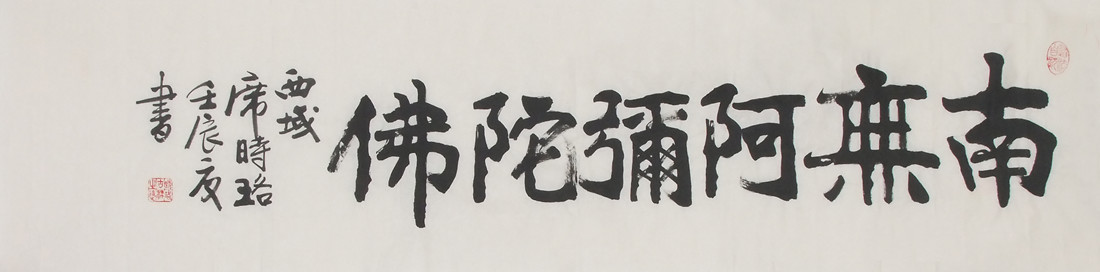 南無阿彌陀佛
西域
席時珞
壬辰夏
書